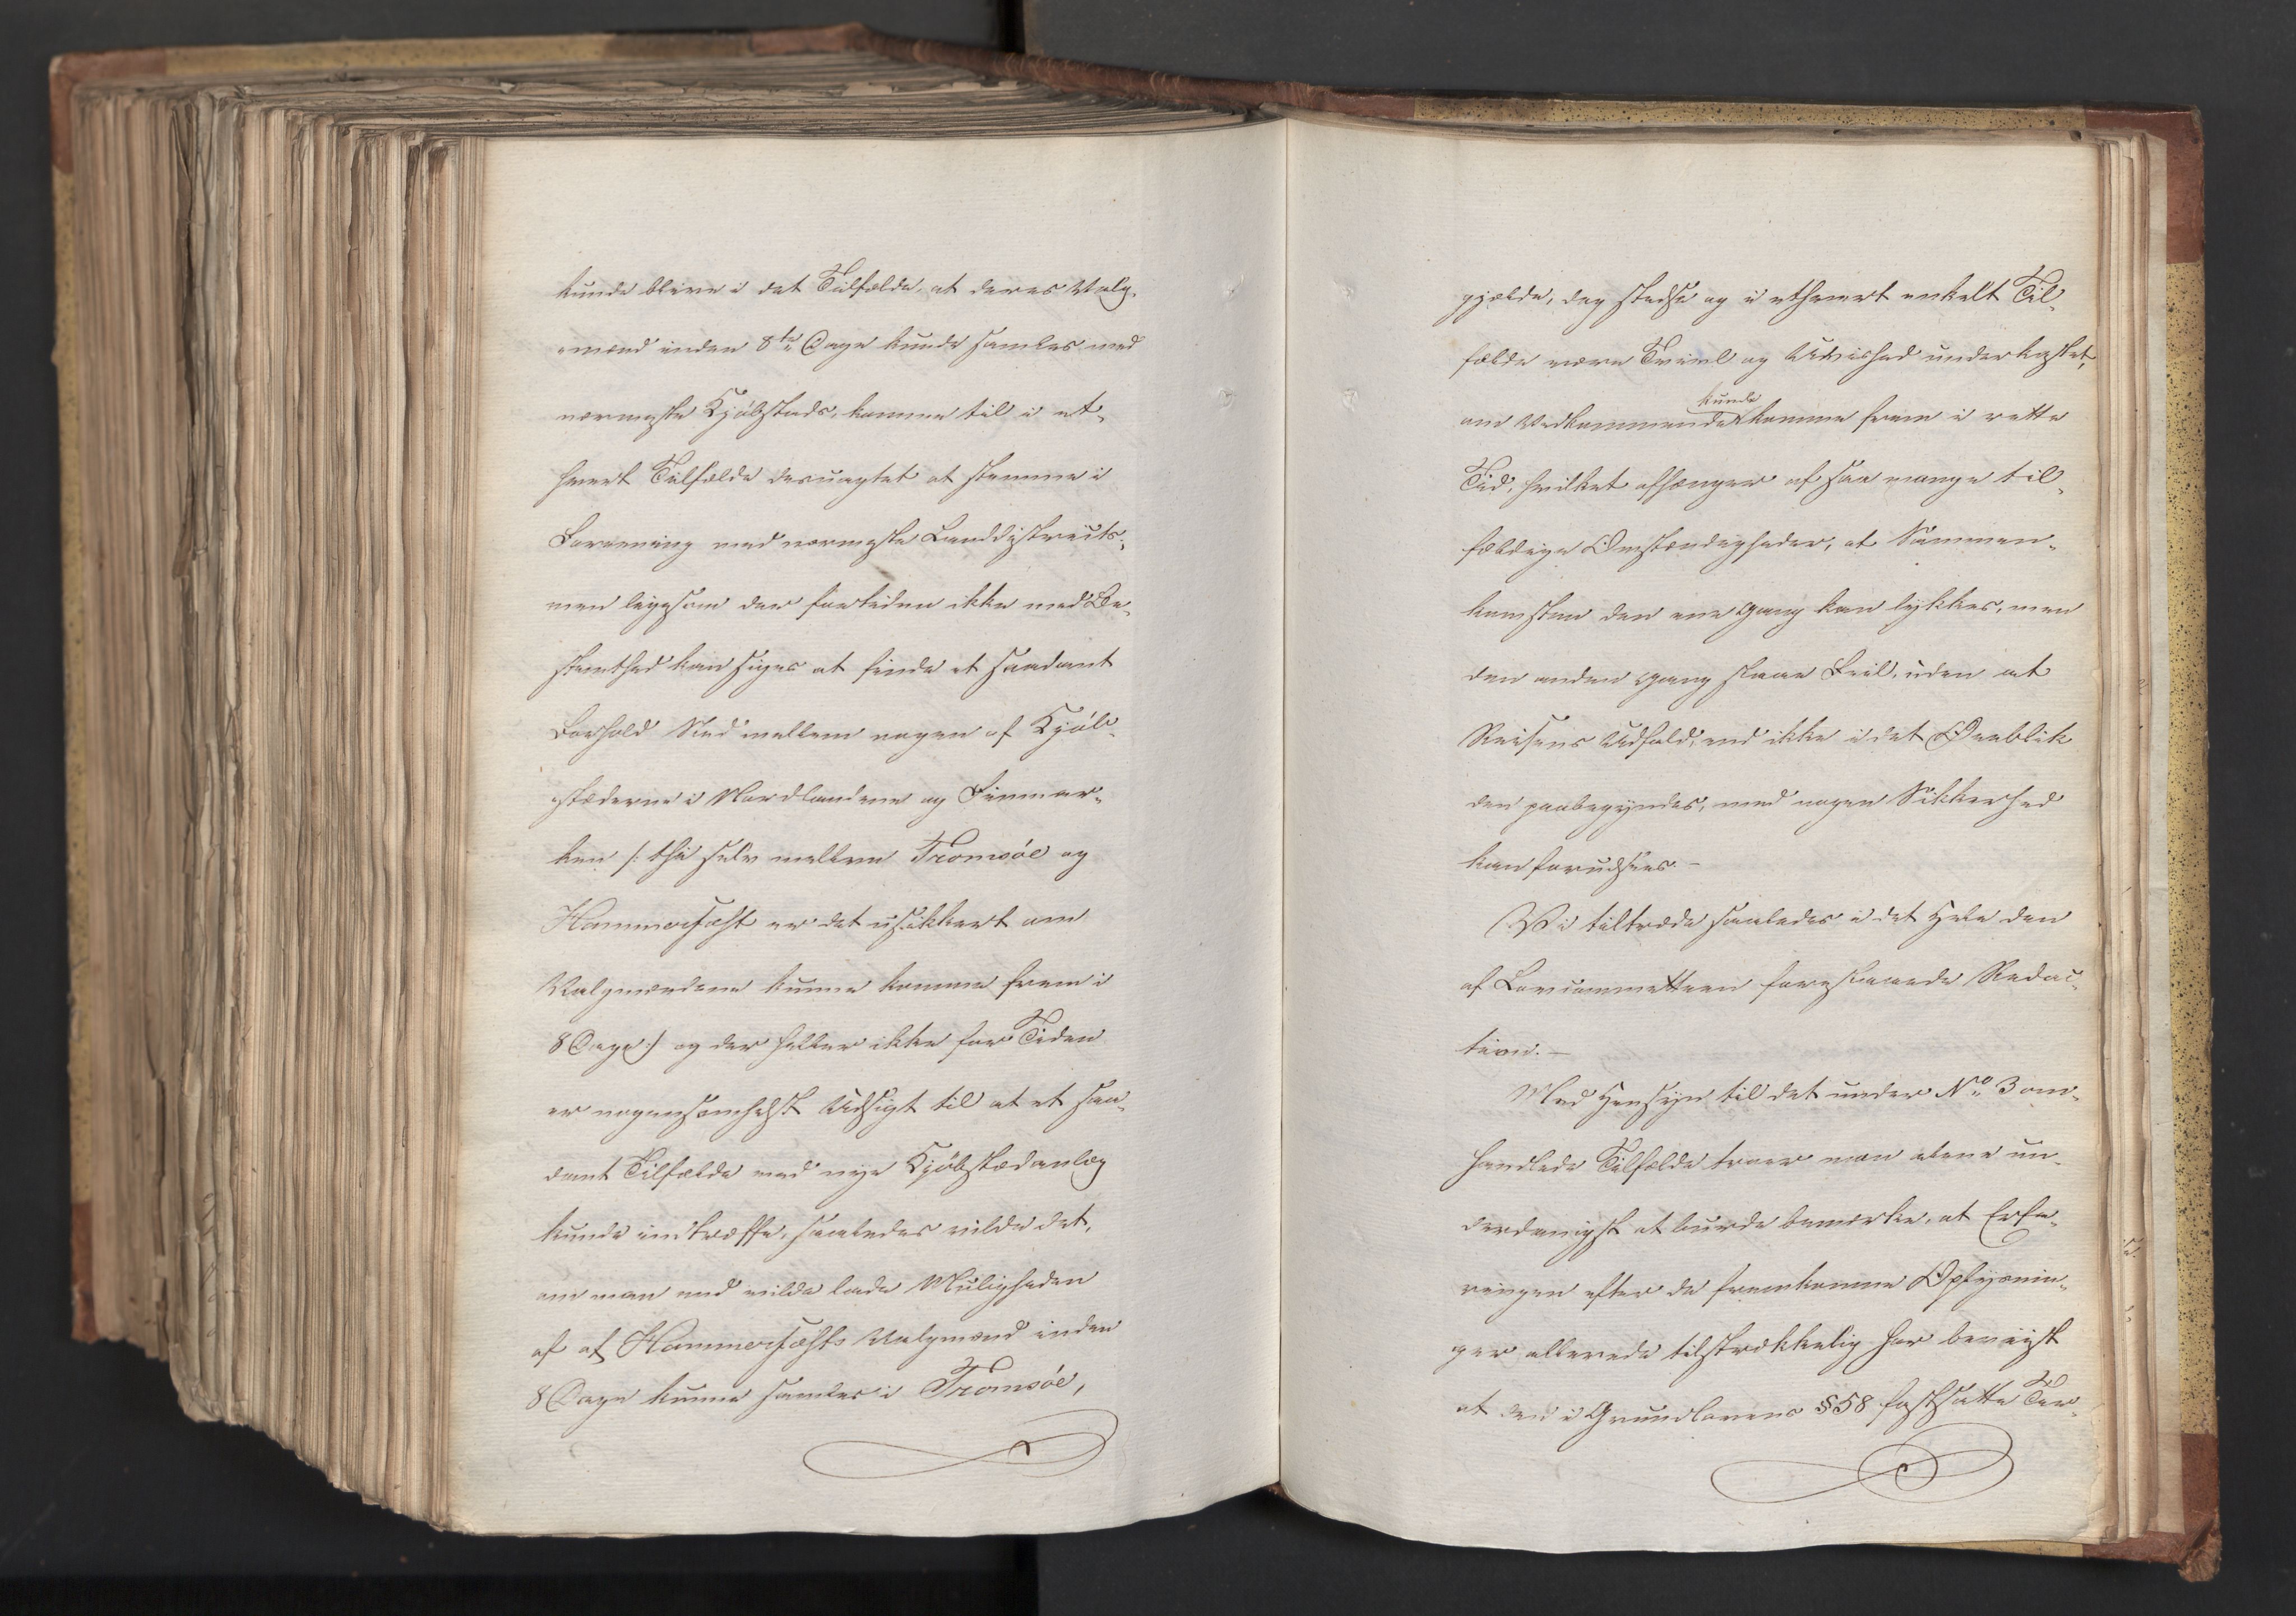 kunde blive i det Tilfælde, at deres Valg-
mænd inden 8te Dage kunde samles med
nærmeste Kjøbstads, komme til i et-
hvert Tilfælde desuagtet at stemme i
Forening med nærmeste Landdistricts;
men ligesom der fortiden ikke med Be-
stemthed kan siges at finde et saadant
Forhold Sted mellem nogen af Kjøb-
stæderne i Nordlandene og Finmar-
ken /: thi selv mellem Tromsöe og
Hammerfest er det usikkert om
Valgmændene kunne komme frem i
8 Dage :/ og der heller ikke for Tiden
er nogensomhelst Udsigt til at et saa-
dant Tilfælde med nye Kjøbstædanlæg
kunde indtræffe, saaledes vilde det,
om man end vilde lade Muligheden
af at Hammerfests Valgmænd inden
8 Dage kunne samles i Tromsöe,
gjælde, dog stedse og i ethvert enkelt Til-
fælde være Tvivl og Uvished underkastet,
om Vedkommende kunde komme frem i rette
Tid, hvilket afhænger af saa mange til-
fældige Omstændigheder, at Sammen-
komsten den ene Gang kan lykkes, men
den anden Gang slaae Feil, uden at
Reisens Udfald, end ikke i det Øieblik
den paabegyndes, med nogen Sikkerhed
kan forudsees. –
Vi tiltræde saaledes i det Hele den
af Lovcommitteen foreslaaede Redac-
tion. –
Med Hensyn til det under No 3 om-
handlede Tilfælde troer man alene un-
derdanigst at burde bemærke, at Erfa-
ringen efter de fremkomne Oplysnin-
ger allerede tilstrækkelig har beviist
at den i Grundlovens § 58 fastsatte Ter-